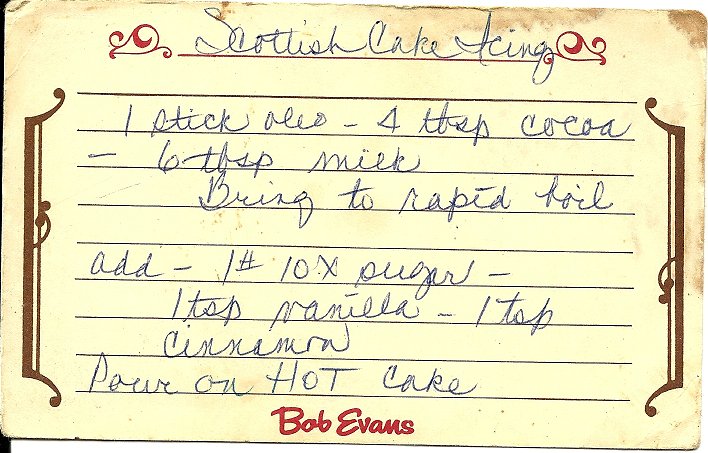 Scottish Cake Icing
1 stick oleo - 4 tbsp cocoa
- 6 tbsp milk
Bring to rapid boil
add - 1# 10X sugar -
1 tsp vanilla - 1 tsp
cinnamon
Pour on HOT cake
Bob Evans